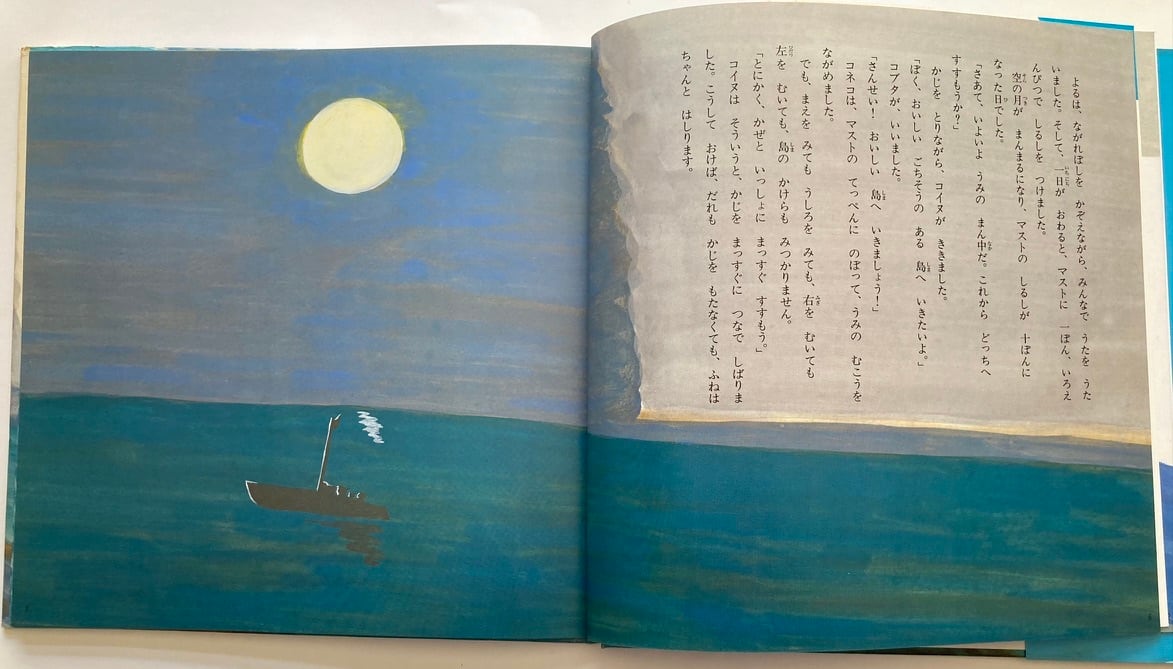 よるは、ながれぼしを かぞえながら、みんなで うたを うた
いました。そして、一日が おわると、マストに 一ぽん、いろえ
んぴつで しるしを つけました。
空の月が まんまるになり、マストの しるしが 十ぽんに
なった日でした。
「さあて、いよいよ うみの まん中だ。これから どっちへ
すすもうか?」
かじを とりながら、コイヌが ききました。
「ぼく、おいしい ごちそうの ある 島へ いきたいよ。」
コブタが、いいました。
「さんせい! おいしい 島へ いきましょう!」
コネコは、マストの てっぺんに のぼって、うみの むこうを
ながめました。
でも、まえを みても うしろを みても、右を むいても
左を むいても、島の かけらも みつかりません。
「とにかく、かぜと いっしょに まっすぐ すすもう。」
コイヌは そういうと、かじを まっすぐに つなで しばりま
した。こうして おけば、だれも かじを もたなくても、ふねは
ちゃんと はしります。